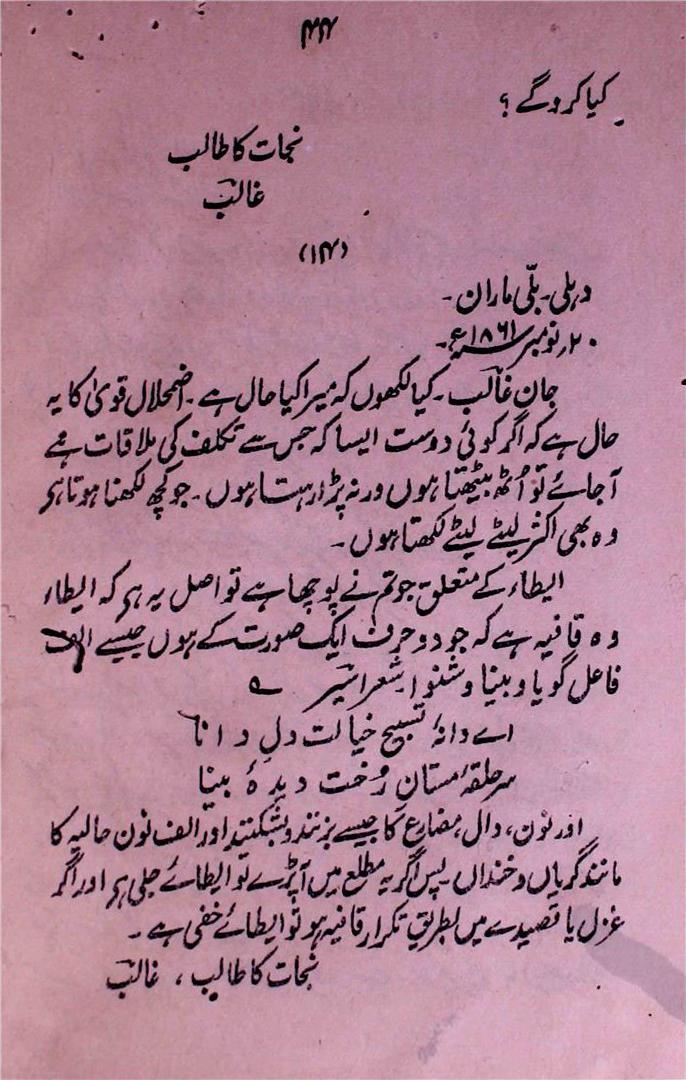 ۴۴
کیا کرو گے ؟
نجات کا طالب
غالب
(۱۴)
دہلی۔ بلّی ماران۔
۲۰؍نومبر ۱۸۶۱ء۔
جان غالب۔ کیا لکھوں کہ میرا کیا حال ہے۔ اضمحلال قویٰ کا یہ
حال ہے کہ اگر کوئی دوست ایسا کہ جس سے تکلف کی ملاقات ہے
آجائے تو اُٹھ بیٹھتا ہوں ورنہ پڑا رہتا ہوں۔ جو کچھ لکھنا ہوتا ہر
وہ بھی اکثر لیٹے لیٹے لکھتا ہوں۔
ایطاء کے متعلق جو تم نے پوچھا ہے تو اصل یہ ہر کہ ایطاء
وہ قافیہ ہے کہ جو دو حرف ایک صورت کے ہوں جیسے الف
فاعل گویا و بینا و شنوا۔ شعر اسیر ؎
اے دانۂ تسبیح خیالت دلِ دانا
سر حلقۂ مستانِ رُخت دیدۂ بینا
اور نون، دال، مضارع کا جیسے بزنند و بشکنند اور الف نون حالیہ کا
مانند گریاں و خنداں۔ پس اگر یہ مطلع میں آپڑے تو ایطائے جلی ہر اور اگر
غزل یا قصیدے میں بطریق تکرار قافیہ ہو تو ایطائے خفی ہے۔
نجات کا طالب ، غالب